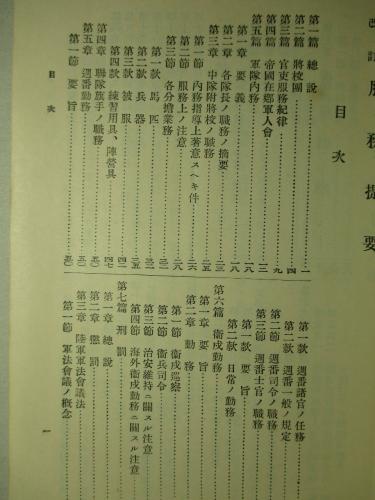 服務提要
目次
第一篇 總說 一
第二篇 將校團 四
第三篇 官吏服務紀律 九
第四篇 帝國在鄉軍人會 一三
第五篇 軍隊內務 一八
第一章 要義 一八
第二章 各隊長ノ職務ノ摘要 二三
第三章 中隊附將校ノ職務 二五
第一節 內務指導上著意スヘキ件 二六
第二節 服務上ノ注意 二八
第三節 各分擔業務 三一
第一款 馬匹
第二款 兵器
第三款 被服 四二
第四款 練習用具、陣營具 四七
第四章 聯隊旗手ノ職務 五〇
第五章 週番勤務 五〇
第一節 要旨 五〇
目次
第一款 週番諸官ノ任務
第二款 週番一般ノ規定
第二節 週番司令ノ職務
第三節 週番士官ノ職務
第一款 要旨
第二款 日常ノ勤務
第六篇 衞戍勤務
第一章 要旨
第二章 勤務
第一節 衞戍巡察
第二節 衞兵司令
第三節 治安維持ニ關スル注意
第四節 海外衞戍勤務ニ關スル注意
第七篇 刑罰
第一章 總說
第二章 懲罰
第三章 陸軍軍法會議法
第一節 軍法會議ノ概念
一